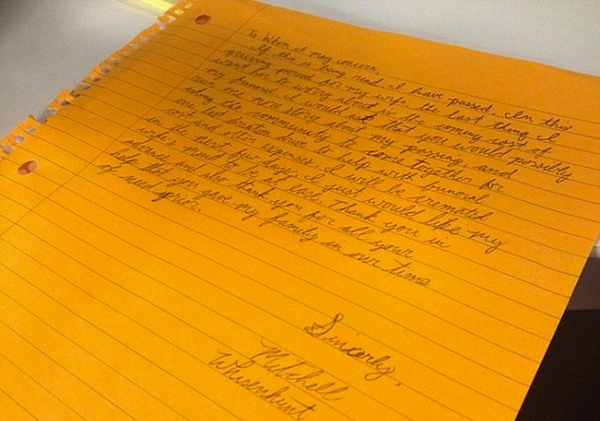 To Whom it may concern,
If this is being read, I have passed. In this
grieving period for my wife the last thing I
want her to worry about is the coming cost of
my funeral. I would ask that you would possibly
run one more story about my passing, and
asking the community to come together for
one last donation drive to help with funeral
cost and other expenses. I will be cremated
in the next few days. I just would like my
wife's mind to be at ease. Thank you in
advance and also thank you for all your
help that you gave my family in our time
of need prior.
Sincerly,
Mitchell
Whisenhunt